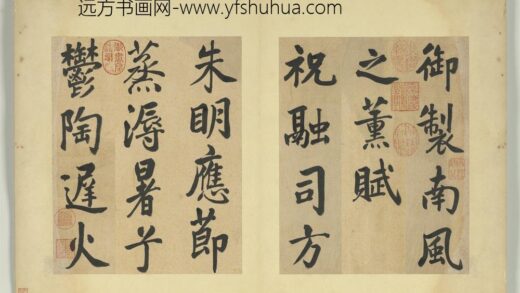 远方书画网-www.yfshuhua.com
御製南風
之薰賦
祝融司方
朱明應節
蒸溽暑于
鬱陶遲火